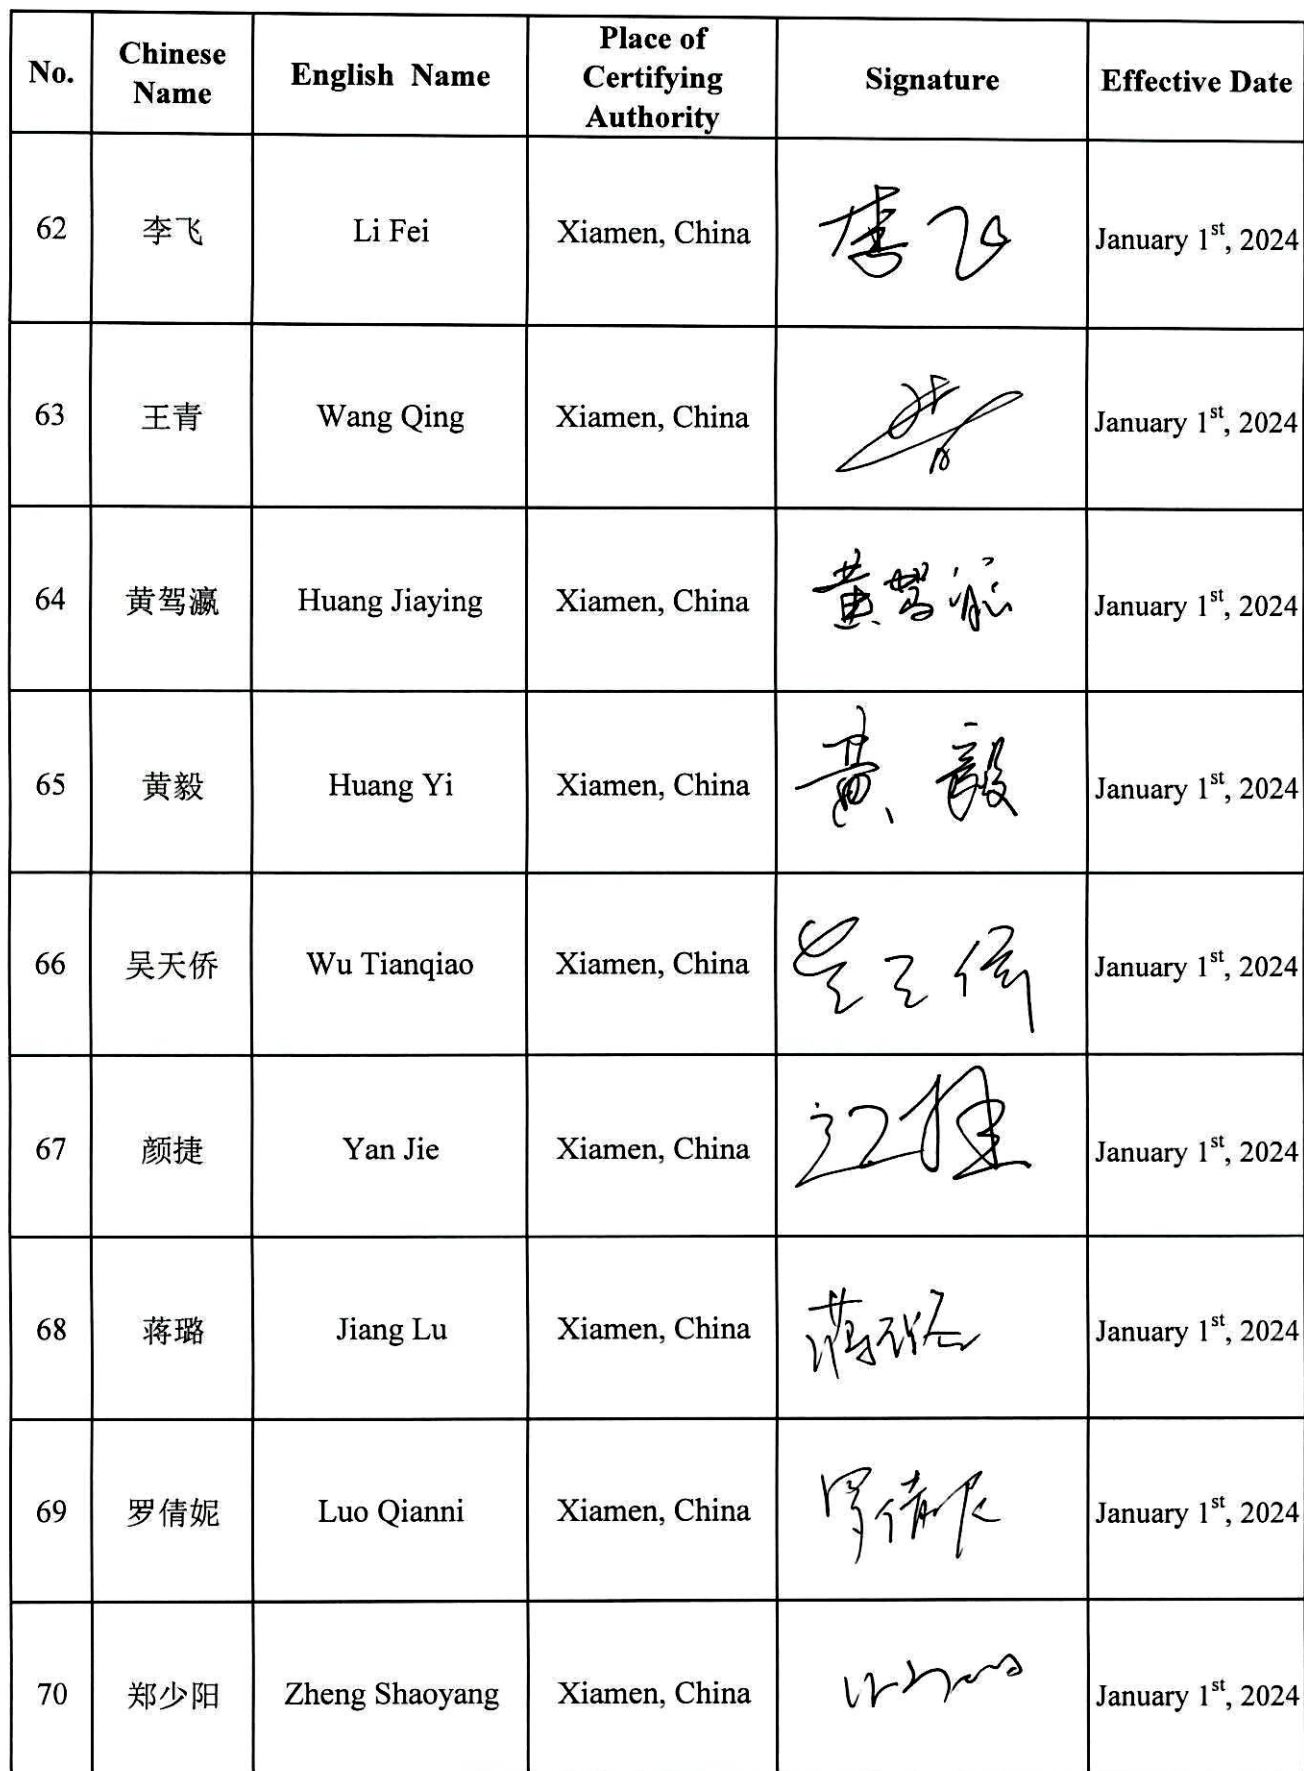 No.
Chinese
Name
English Name
Place of
Certifying
Authority
Signature
Effective Date
62
李飞
Li Fei
Xiamen, China
李飞
January 1st, 2024
63
王青
Wang Qing
Xiamen, China
January 1st, 2024
64
黄驾瀛
Huang Jiaying
Xiamen, China
黄驾瀛
January 1st, 2024
65
黄毅
Huang Yi
Xiamen, China
黄毅
January 1st, 2024
66
吴天侨
Wu Tianqiao
Xiamen, China
吴天侨
January 1st, 2024
67
颜捷
Yan Jie
Xiamen, China
January 1st, 2024
68
蒋璐
Jiang Lu
Xiamen, China
蒋璐
January 1st, 2024
69
罗倩妮
Luo Qianni
Xiamen, China
罗倩妮
January 1st, 2024
70
郑少阳
Zheng Shaoyang
Xiamen, China
January 1st, 2024